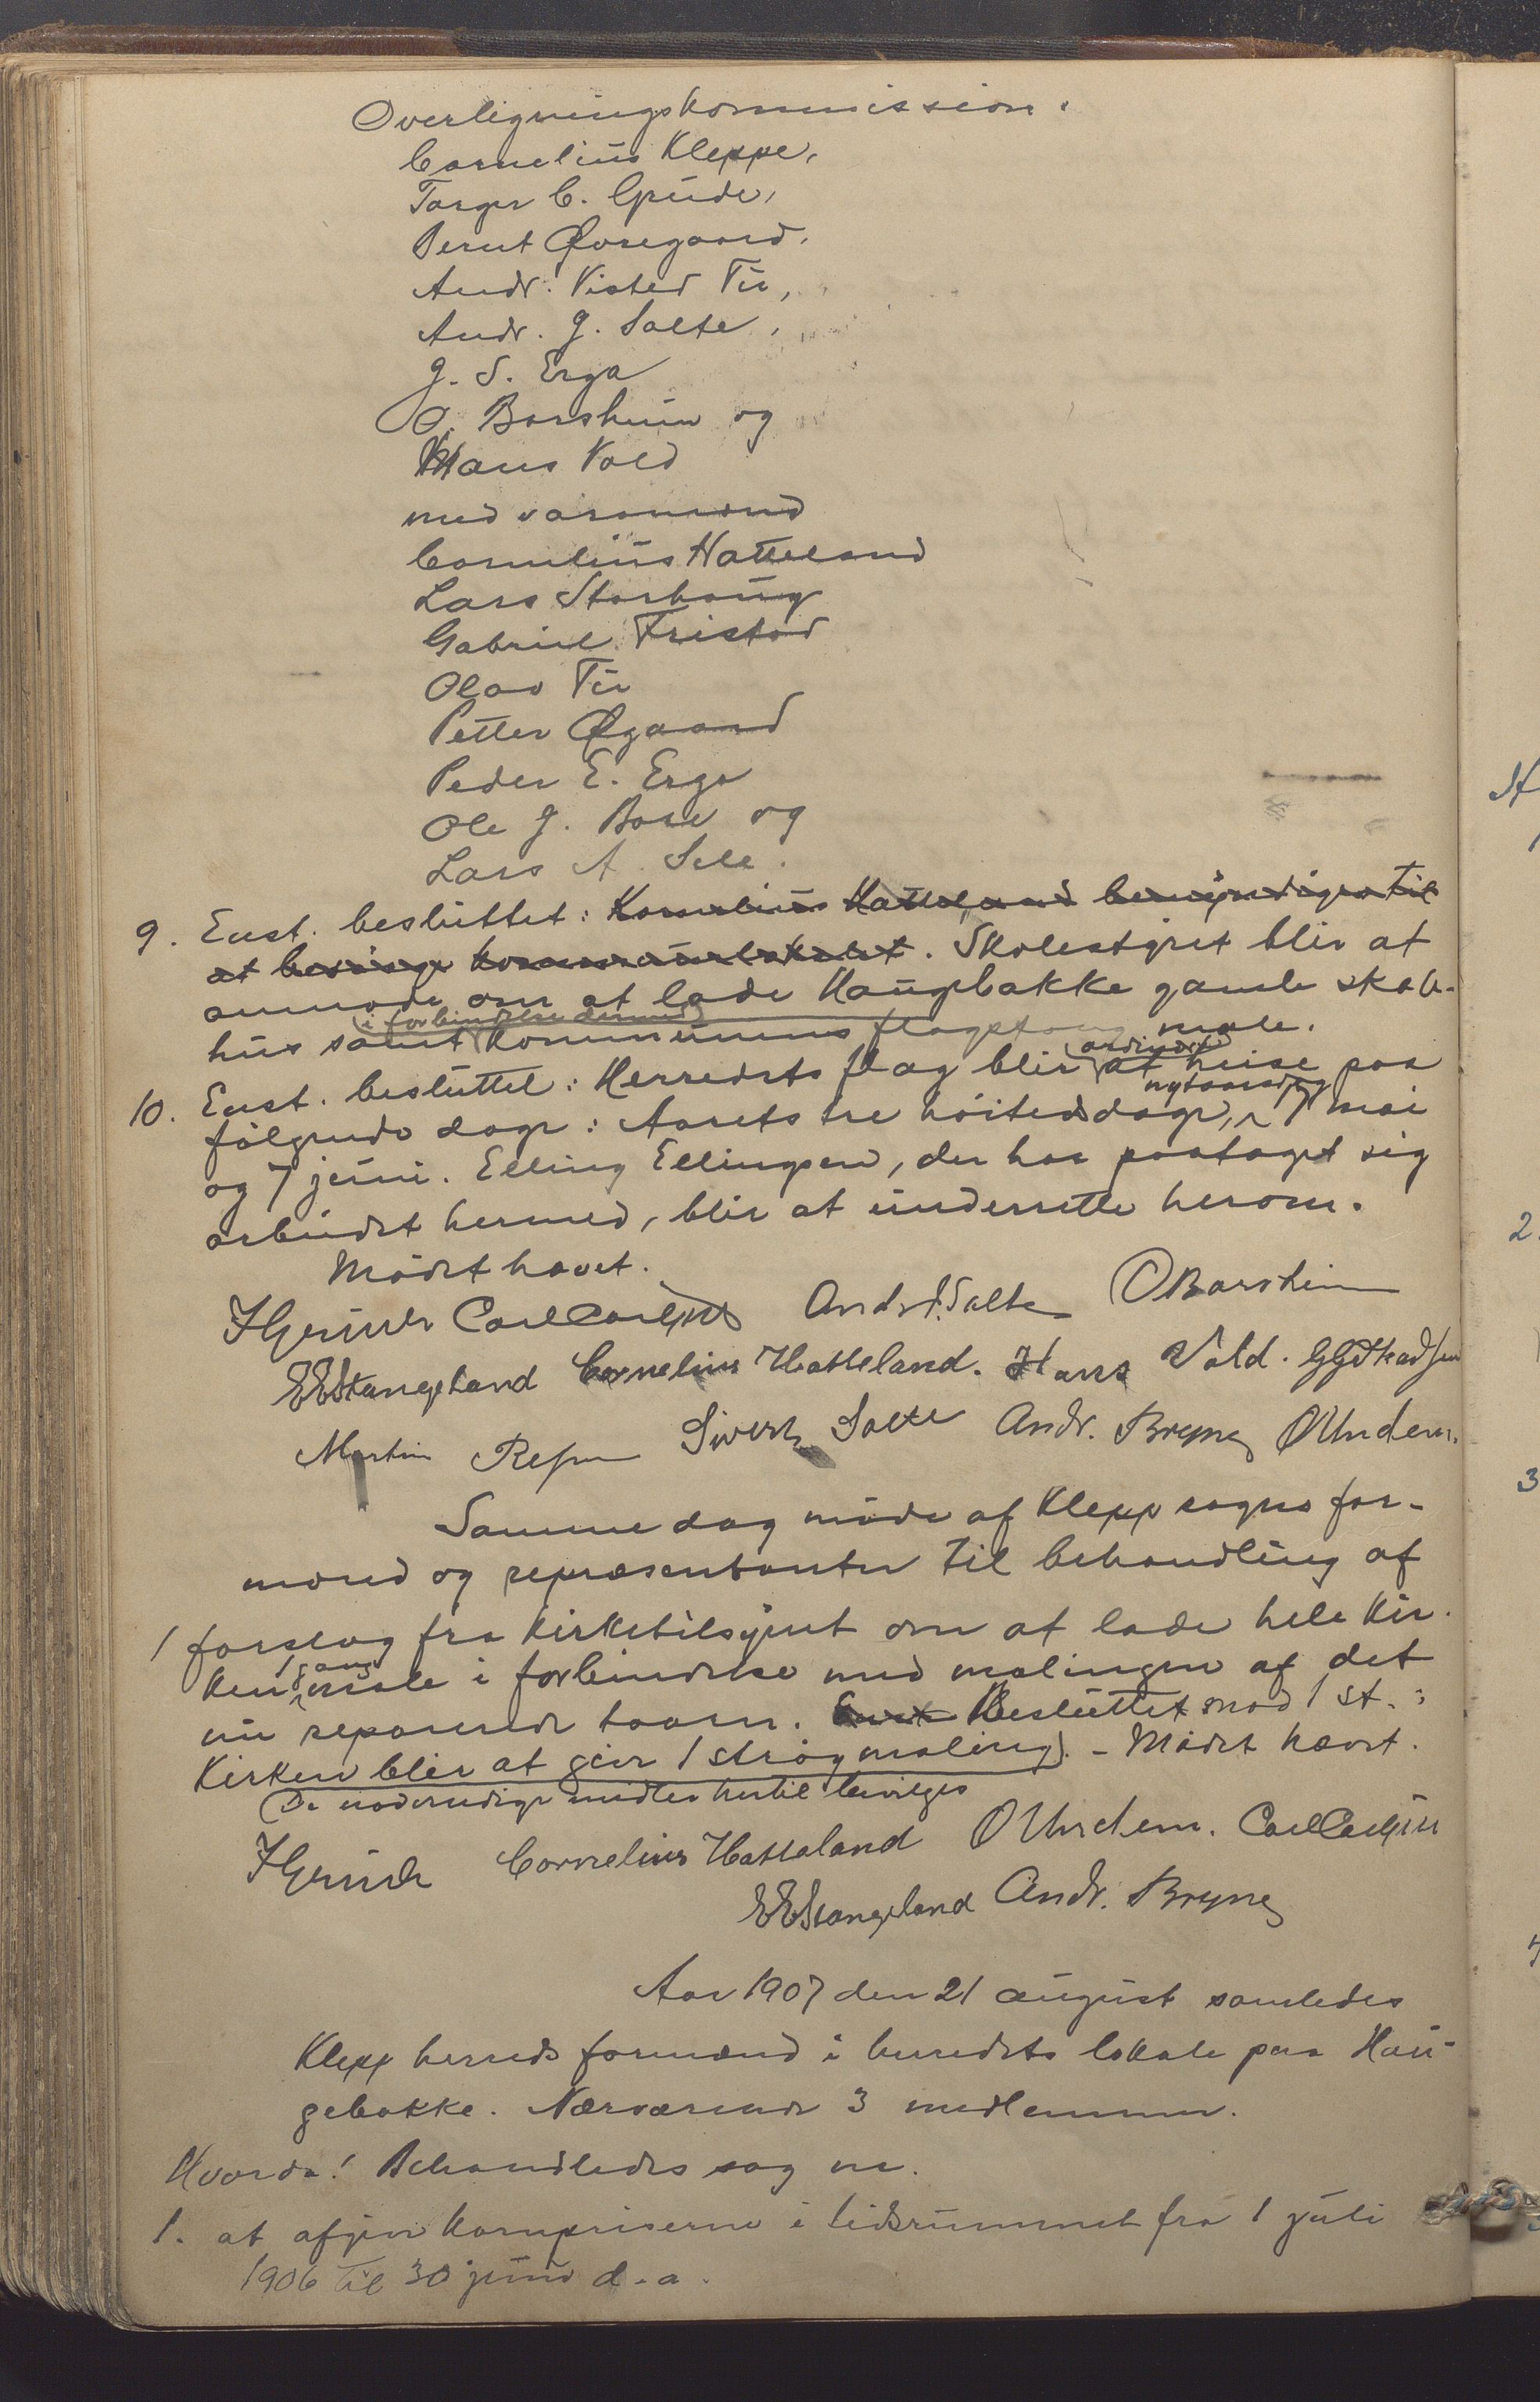 Overligningskommission:
Cornelius Kleppe,
Torger C. Grude,
Bernt Øvregaard,
Andr. Visted Tu,
Andr. J. Salte,
J. S. Erga
O. Borsheim og
Hans Vold
med varamænd
Cornelius Hatteland
Lars Storhoug
Gabriel Friestad
Olav Tu
Petter Øgaard
Peder E. Erga
Ole J. Bore og
Lars A. Sele.
9. Enst. besluttet: Kornelius Hatteland bemyndiges til
at besørge kommunelokalet. Skolestyret blir at
anmode om at lade Haugebakke gamle skole-
hus samt (i forbindelse dermed) kommunens flagstang male.
10. Enst. besluttet: Herredets flag blir (ordinært) at heise paa
følgende dage: Aarets tre høitedsdage, nytaarsdag, 17 mai
og 7 juni. Elling Ellingsen, der har paataget sig
arbeidet hermed, blir at underrette herom.
Mødet hævet.
Carl Carlsen Andr. J. Salte O Borsheim
E E Stangeland Cornelius Hatteland. Hans Vold.
Martin Sivert Salte Andr. Bryne O Undem.
Samme dag møde af Klepp sogns for-
mænd og repræsentanter til behandling af
1 forslag fra kirketilsynet om at lade hele kir-
ken 1 gang male i forbindelse med malingen af det
nu reparerede taarn. Enst. Besluttet mod 1 st.:
Kirken blir at give 1 strøg maling. - Mødet hævet.
(De nødvendige midler hertil bevilges
Cornelius Hatteland O Undem. Carl Carlsen
E E Stangeland Andr. Bryne
Aar 1907 den 21 august samledes
Klepp herreds formænd i herredets lokale paa Hau-
gebakke. Nærværende 3 medlemmer.
Hvorda! Behandledes sag nr.
1. at afgive kornpriserne i tidsrummet fra 1 juli
1906 til 30 juni d. a.